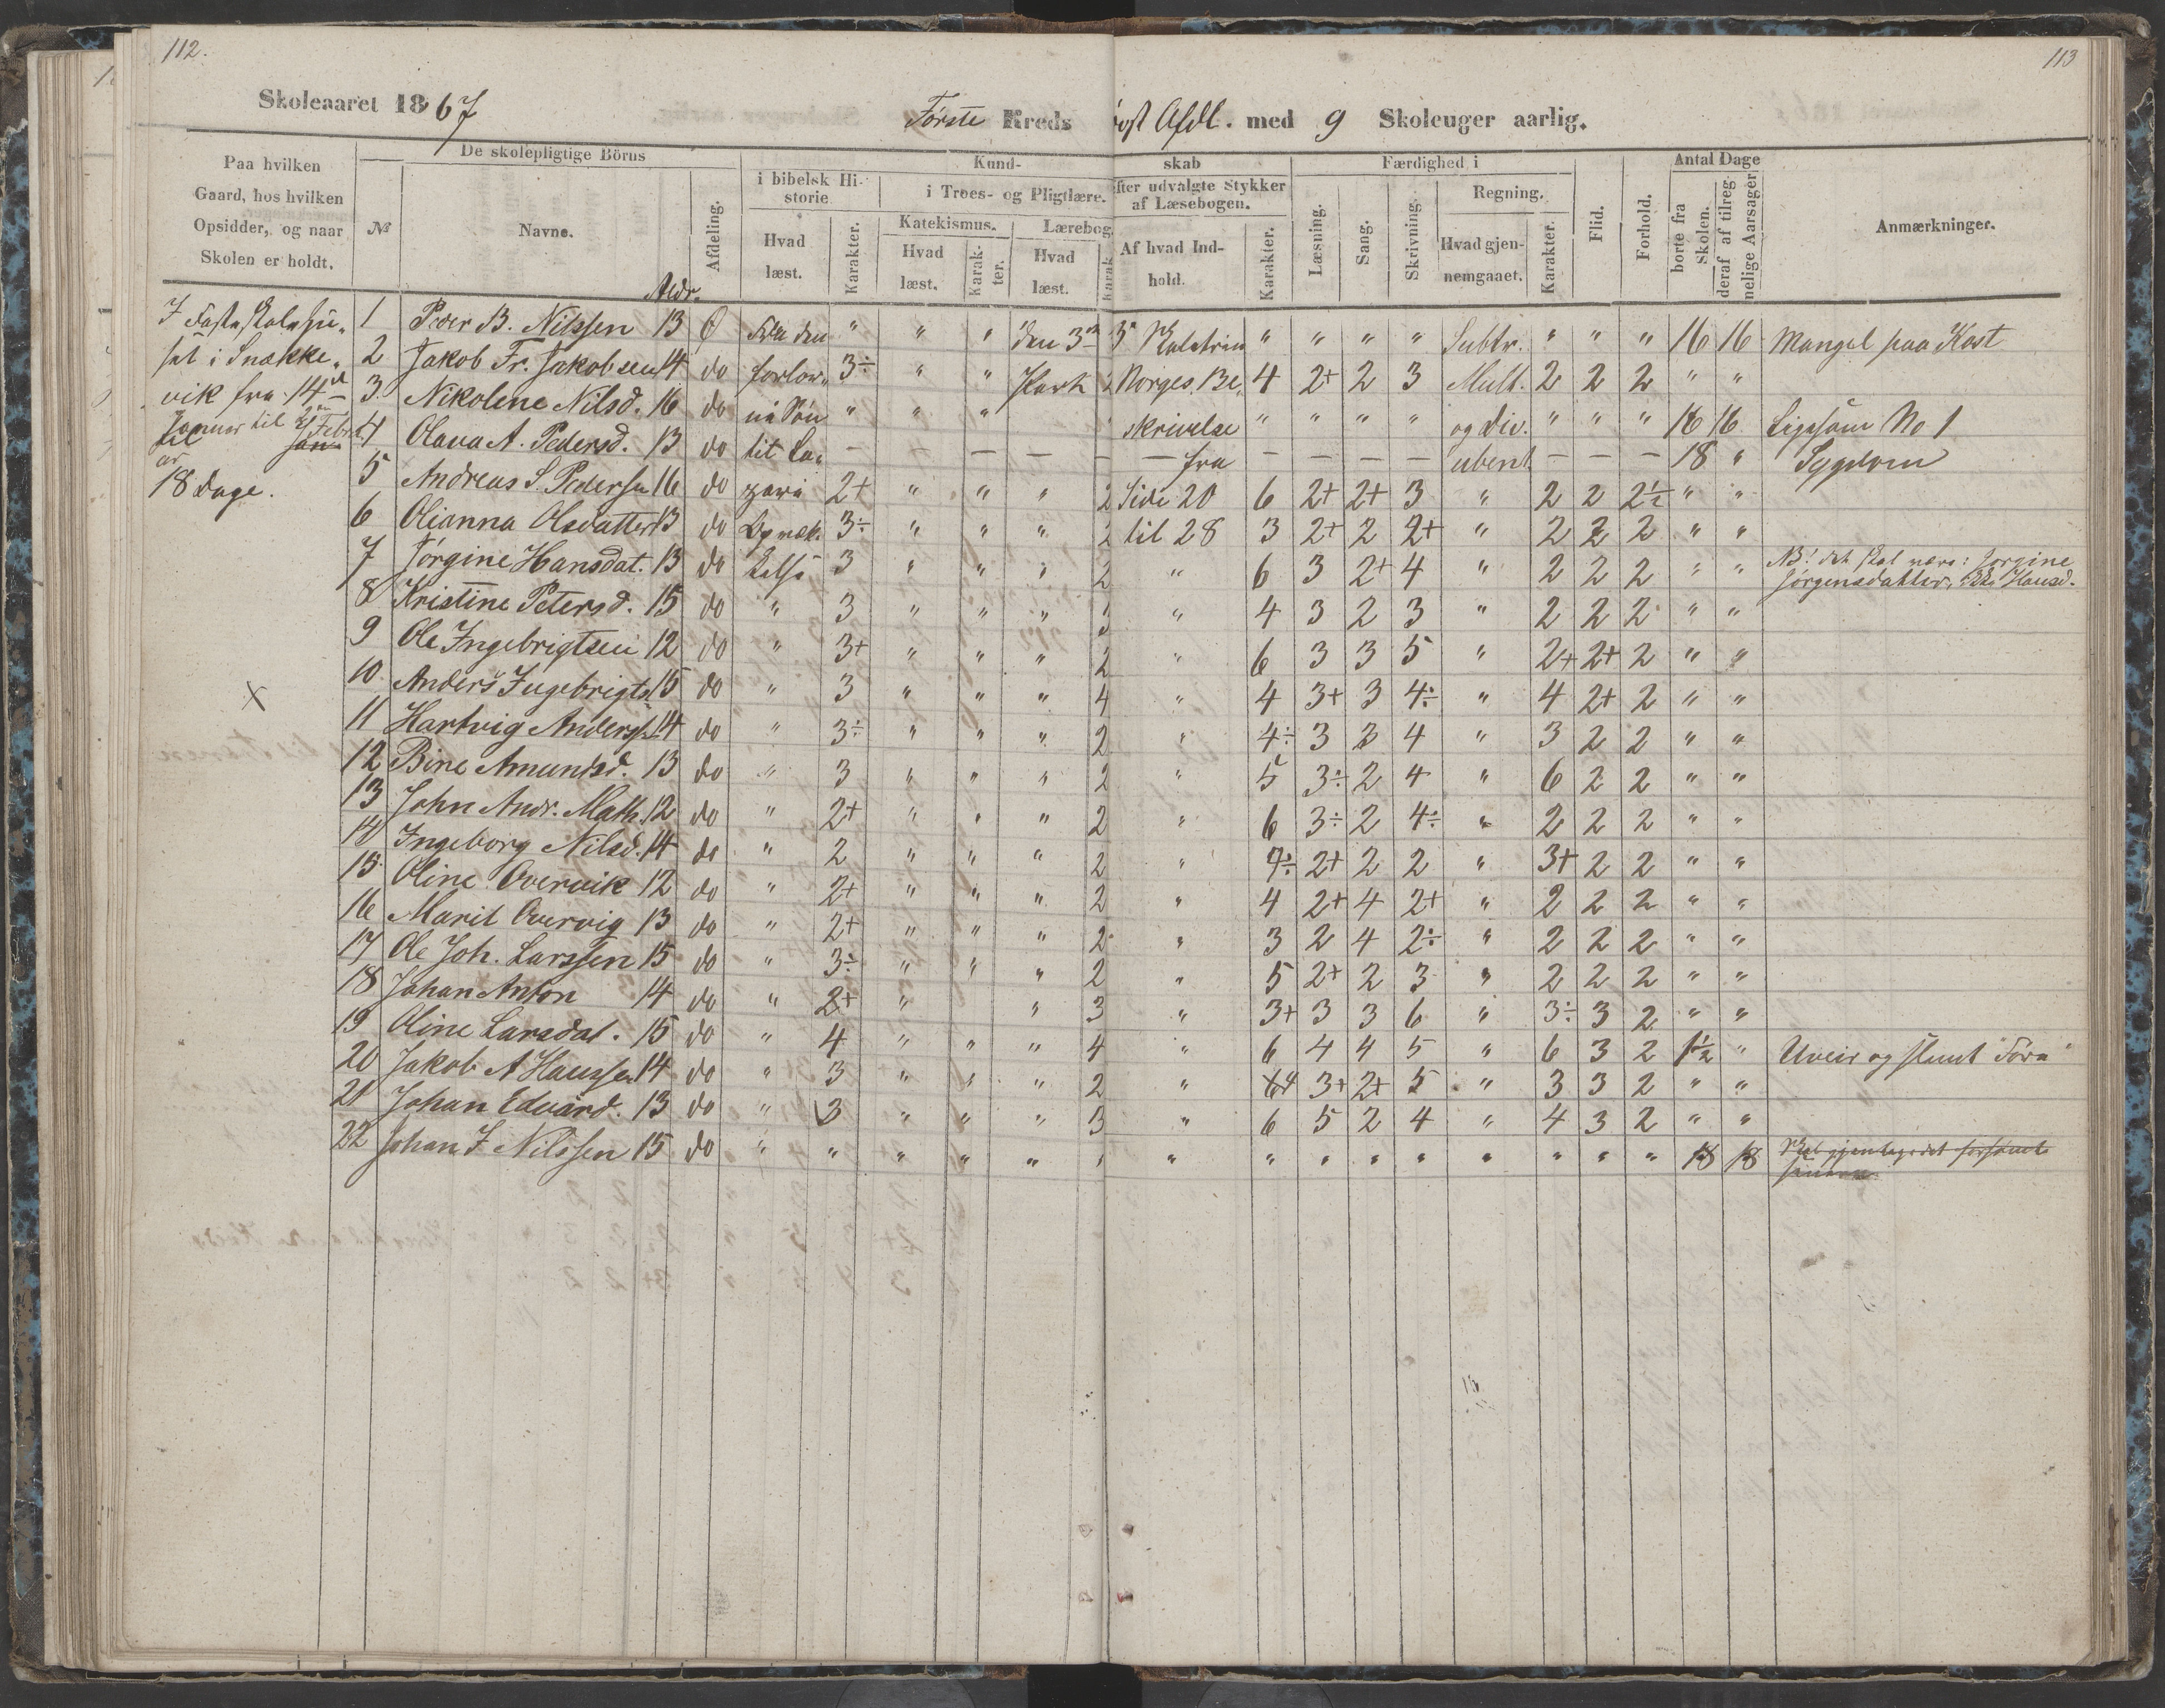 112.
113
Skoleaaret 1867
Første Kreds øst Afdl. med 9 Skoleuger aarlig.
Paa hvilken Gaard, hos hvilken Opsidder, og naar Skolen er holdt.
De skolepligtige Börns
№
Navne.
Aldr.
Afdeling.
Kundskab
i bibelsk Historie
Hvad læst.
Karakter.
i Troes- og Pligtlære.
Katekismus.
Hvad læst.
Karakter.
Lærebog.
Hvad læst.
Karak
efter udvalgte Stykker af Læsebogen.
Af hvad Indhold.
Karakter.
Færdighed i
Læsning.
Sang.
Skrivning.
Regning.
Hvad gjennemgaaet.
Karakter.
Flid.
Forhold.
Antal Dage
borte fra Skolen.
deraf af tilregnelige Aarsager.
Anmærkninger.
I Faste skolehu-
set i Snække-
vik fra 14de
Januar til 2den Febr.
til Jan
er
18 Dage.
X
1 Peder B. Nilssen 13 Ø Fra den " " " den 3die 3 " " " " Subtr. " " " 16 16 Mangel paa Kost
2 Jakob Fr. Jakobsen 14 do forlor- 3÷ " " Part 2 Norges Be- 4 2+ 2 3 Mult. 2 2 2 " "
3 Nikolene Nilsd. 16 do ne Søn " " " skrivelse " " " " og div. " " " 16 16 Ligesom No 1
4 Olava A. Pedersd. 13 do til La- — — — — — fra — — — — ubent — — — 18 " Sygdom
5 Andreas S. Pedersen 16 do zari 2+ " " " 2 Side 20 6 2+ 2+ 3 " 2 2 2½ " "
6 Olianna Olsdatter 13 do Opvæk- 3÷ " " " 2 til 28 3 2+ 2 2+ " 2 2 2 " "
7 Jørgine Hansdat. 13 do kelse 3 " " " 2 " 6 3 2+ 4 " 2 2 2 " " NB! det skal være: Jørgine
Jørgensdatter, ikke Hansd.
8 Kristine Petersd. 15 do " 3 " " " 3 " 4 3 2 3 " 2 2 2 " "
9 Ole Ingebrigtsen 12 do " 3+ " " " 2 " 6 3 3 5 " 2+ 2+ 2 " "
10. Anders Ingebrigts 15 do " 3 " " " 4 " 4 3+ 3 4÷ " 4 2+ 2 " "
11 Hartvig Anders. 14 do " 3÷ " " " 2 " 4÷ 3 3 4 " 3 2 2 " "
12 Bine Amundsd. 13 do " 3 " " " 2 " 5 3÷ 2 4 " 6 2 2 " "
13 John Andr. Math. 12 do " 2+ " " " 2 " 6 3÷ 2 4÷ " 2 2 2 " "
14 Ingeborg Nilsd. 14 do " 2 " " " 2 " 4÷ 2+ 2 2 " 3+ 2 2 " "
15. Oline Overvik 12 do " 2+ " " " 2 " 4 2+ 4 2+ " 2 2 2 " "
16 Marit Overvig 13 do " 2+ " " " 2 " 3 2 4 2÷ " 2 2 2 " "
17 Ole Joh. Larssen 15 do " 3÷ " " " 2 " 5 2+ 2 3 " 2 2 2 " "
18 Johan Anton 14 do " 2+ " " 3 " 3+ 3 3 6 " 3÷ 3 2 " "
19 Oline Larsdat. 15 do " 4 " " " 4 " 6 4 4 5 " 6 3 2 1½ " Uveir og slemt Føre
20 Jakob A Hanssen 14 do " 3 " " " 2 " 4 3+ 2+ 5 " 3 3 2 " "
21 Johan Edvard. 13 do " 3 " " " 3 " 6 5 2 4 " 4 3 2 " "
22 Johan I Nilssen 15 do " " " " " " " " " " " " " " " 18 18 Skal gjentage det forsømte
senere